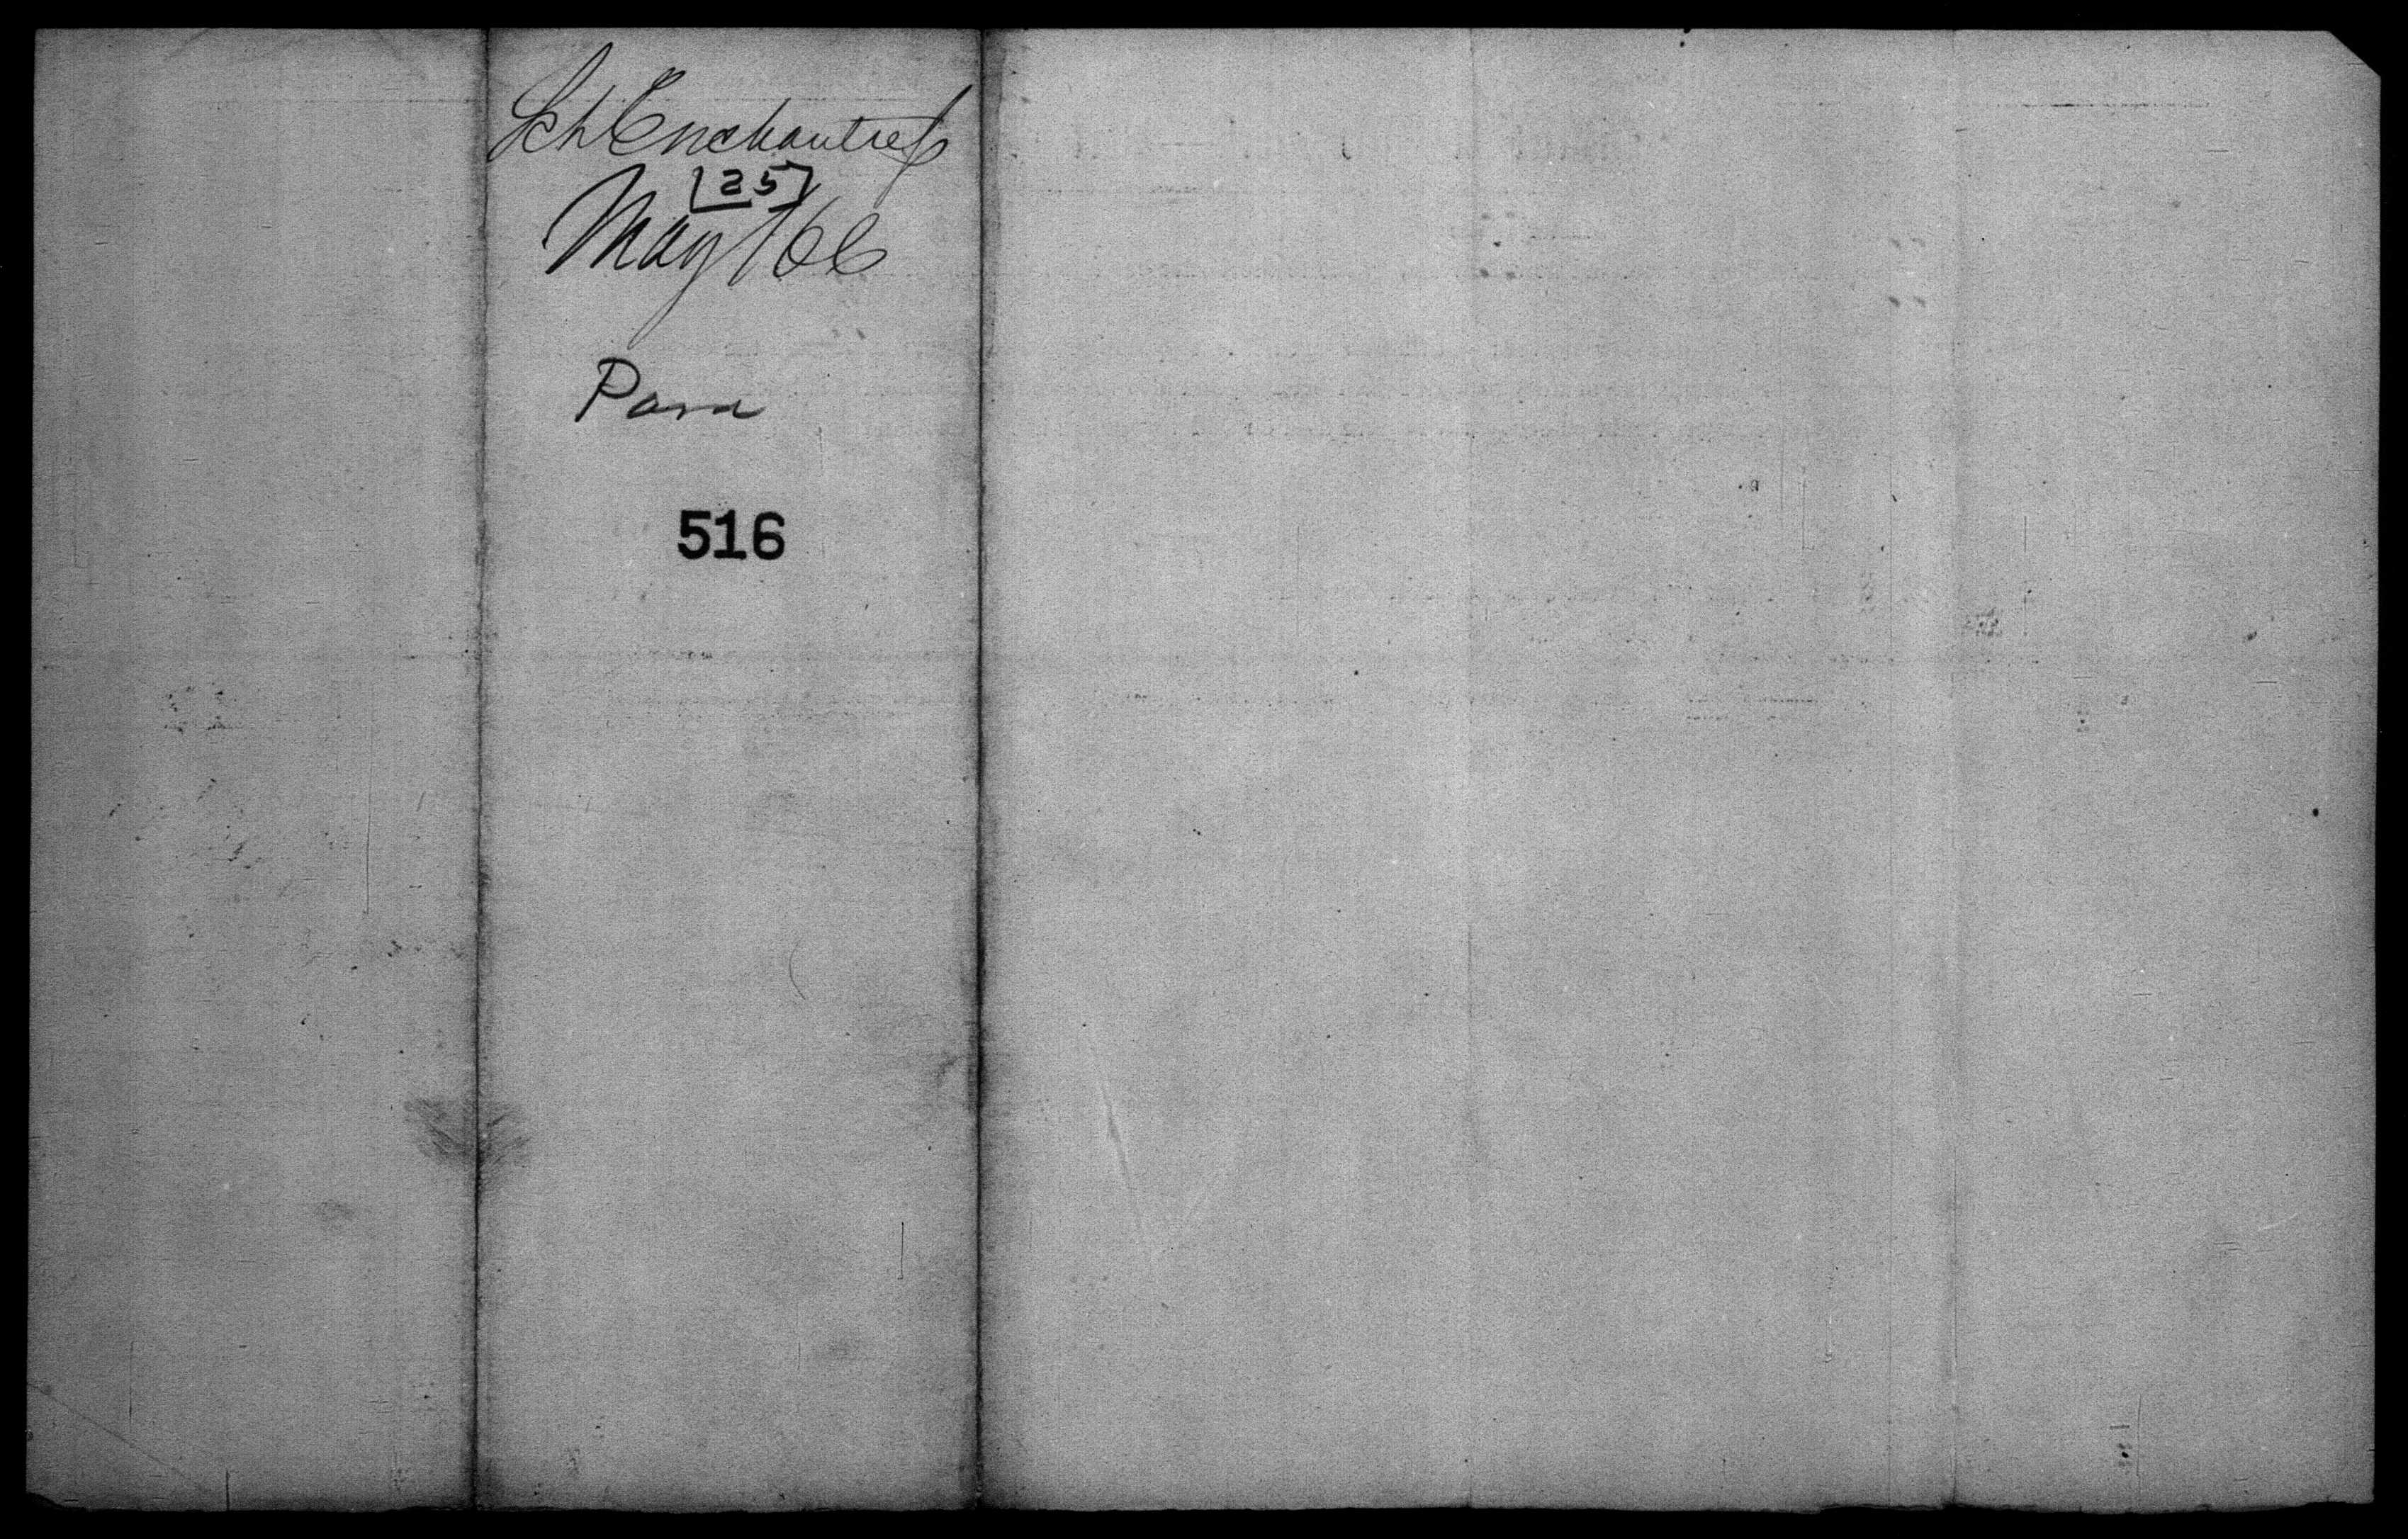 Sch Enchantress
[25]
May /66
Para
516